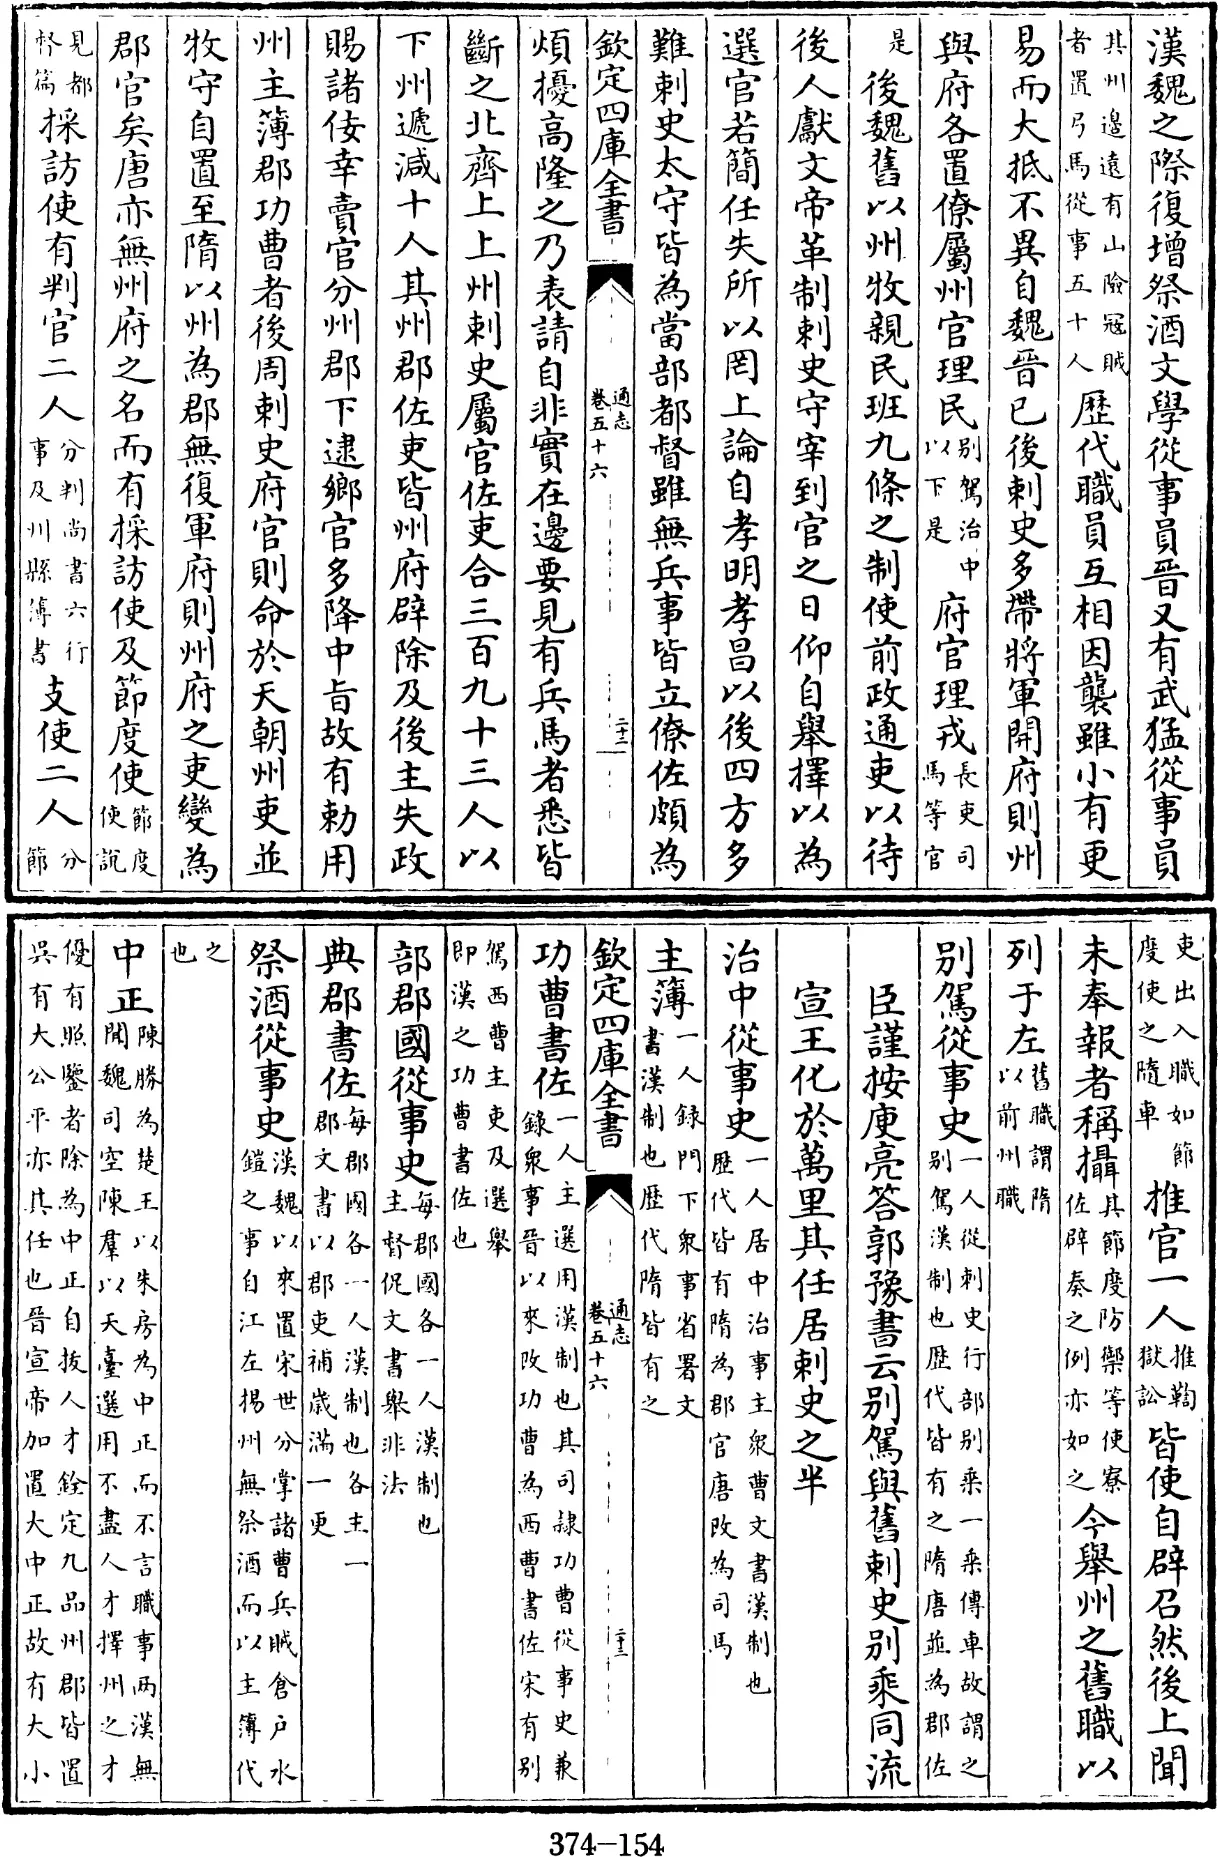 漢魏之際復增祭酒文學從事員晉又有武猛從事員
其州邊遠有山險冦賊
者置弓馬從事五十人
歷代職員互相因襲雖小有更
易而大抵不異自魏晉已後刺史多帶將軍開府則州
與府各置僚屬州官理民
别駕治中
以下是
府官理戎
長吏司
馬等官
是
後魏舊以州牧親民班九條之制使前政通吏以待
後人獻文帝革制刺史守宰到官之日仰自舉擇以為
選官若簡任失所以罔上論自孝明孝昌以後四方多
難刺史太守皆為當部都督雖無兵事皆立僚佐頗為
欽定四庫全書
通志
卷五十六
二十二
煩擾高隆之乃表請自非實在邊要見有兵馬者悉皆
斷之北齊上上州刺史屬官佐吏合三百九十三人以
下州遞減十人其州郡佐吏皆州府辟除及後主失政
賜諸佞幸賣官分州郡下逮鄉官多降中旨故有勅用
州主簿郡功曹者後周刺史府官則命於天朝州吏並
牧守自置至隋以州為郡無復軍府則州府之吏變為
郡官矣唐亦無州府之名而有採訪使及節度使
節度
使說
見都
督篇
採訪使有判官二人
分判尚書六行
事及州縣簿書
支使二人
分
節
吏出入職如節
度使之隨車
推官一人
推鞫
獄訟
皆使自辟召然後上聞
未奉報者稱攝
其節度防禦等使寮
佐辟奏之例亦如之
今舉州之舊職以
列于左
舊職謂隋
以前州職
别駕從事史
一人從刺史行部别乘一乘傳車故謂之
别駕漢制也歴代皆有之隋唐並為郡佐
臣謹按庾亮答郭豫書云别駕與舊刺史别乘同流
宣王化於萬里其任居刺史之半
治中從事史
一人居中治事主衆曹文書漢制也
歴代皆有隋為郡官唐改為司馬
主簿
一人録門下衆事省署文
書漢制也歴代隋皆有之
欽定四庫全書
通志
卷五十六
二十三
功曹書佐
一人主選用漢制也其司隸功曹從事史兼
錄衆事晉以來改功曹為西曹書佐宋有别
駕西曹主吏及選舉
即漢之功曹書佐也
部郡國從事史
每郡國各一人漢制也
主督促文書舉非法
典郡書佐
每郡國各一人漢制也各主一
郡文書以郡吏補歲滿一更
祭酒從事史
漢魏以來置宋世分掌諸曹兵賊倉戶水
鎧之事自江左揚州無祭酒而以主簿代
之
也
中正
陳勝為楚王以朱房為中正而不言職事兩漢無
聞魏司空陳羣以天臺選用不盡人才擇州之才
優有照鑒者除為中正自拔人才銓定九品州郡皆置
吳有大公平亦其任也晉宣帝加置大中正故有大小
374-154